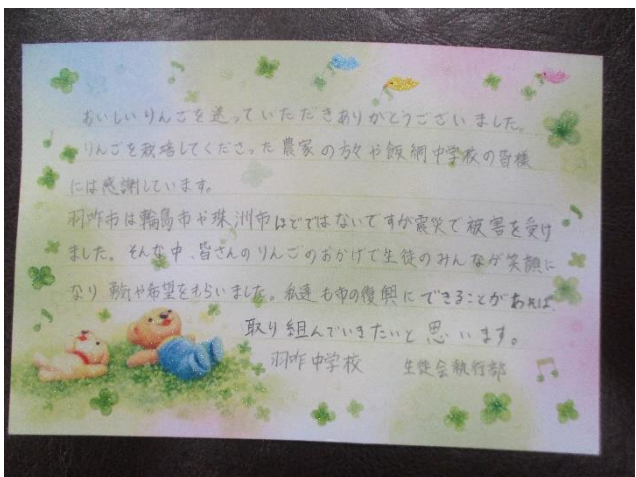 おいしいりんごを送っていただきありがとうございました。
りんごを栽培してくださった農家の方々や飯綱中学校の皆様
には感謝しています。
羽咋市は輪島市や珠洲市ほどではないですが震災で被害を受け
ました。そんな中、皆さんのりんごのおかげで生徒のみんなが笑顔に
なり勇気や希望をもらいました。私達も市の復興にできることがあれば、
取り組んでいきたいと思います。
羽咋中学校 生徒会執行部